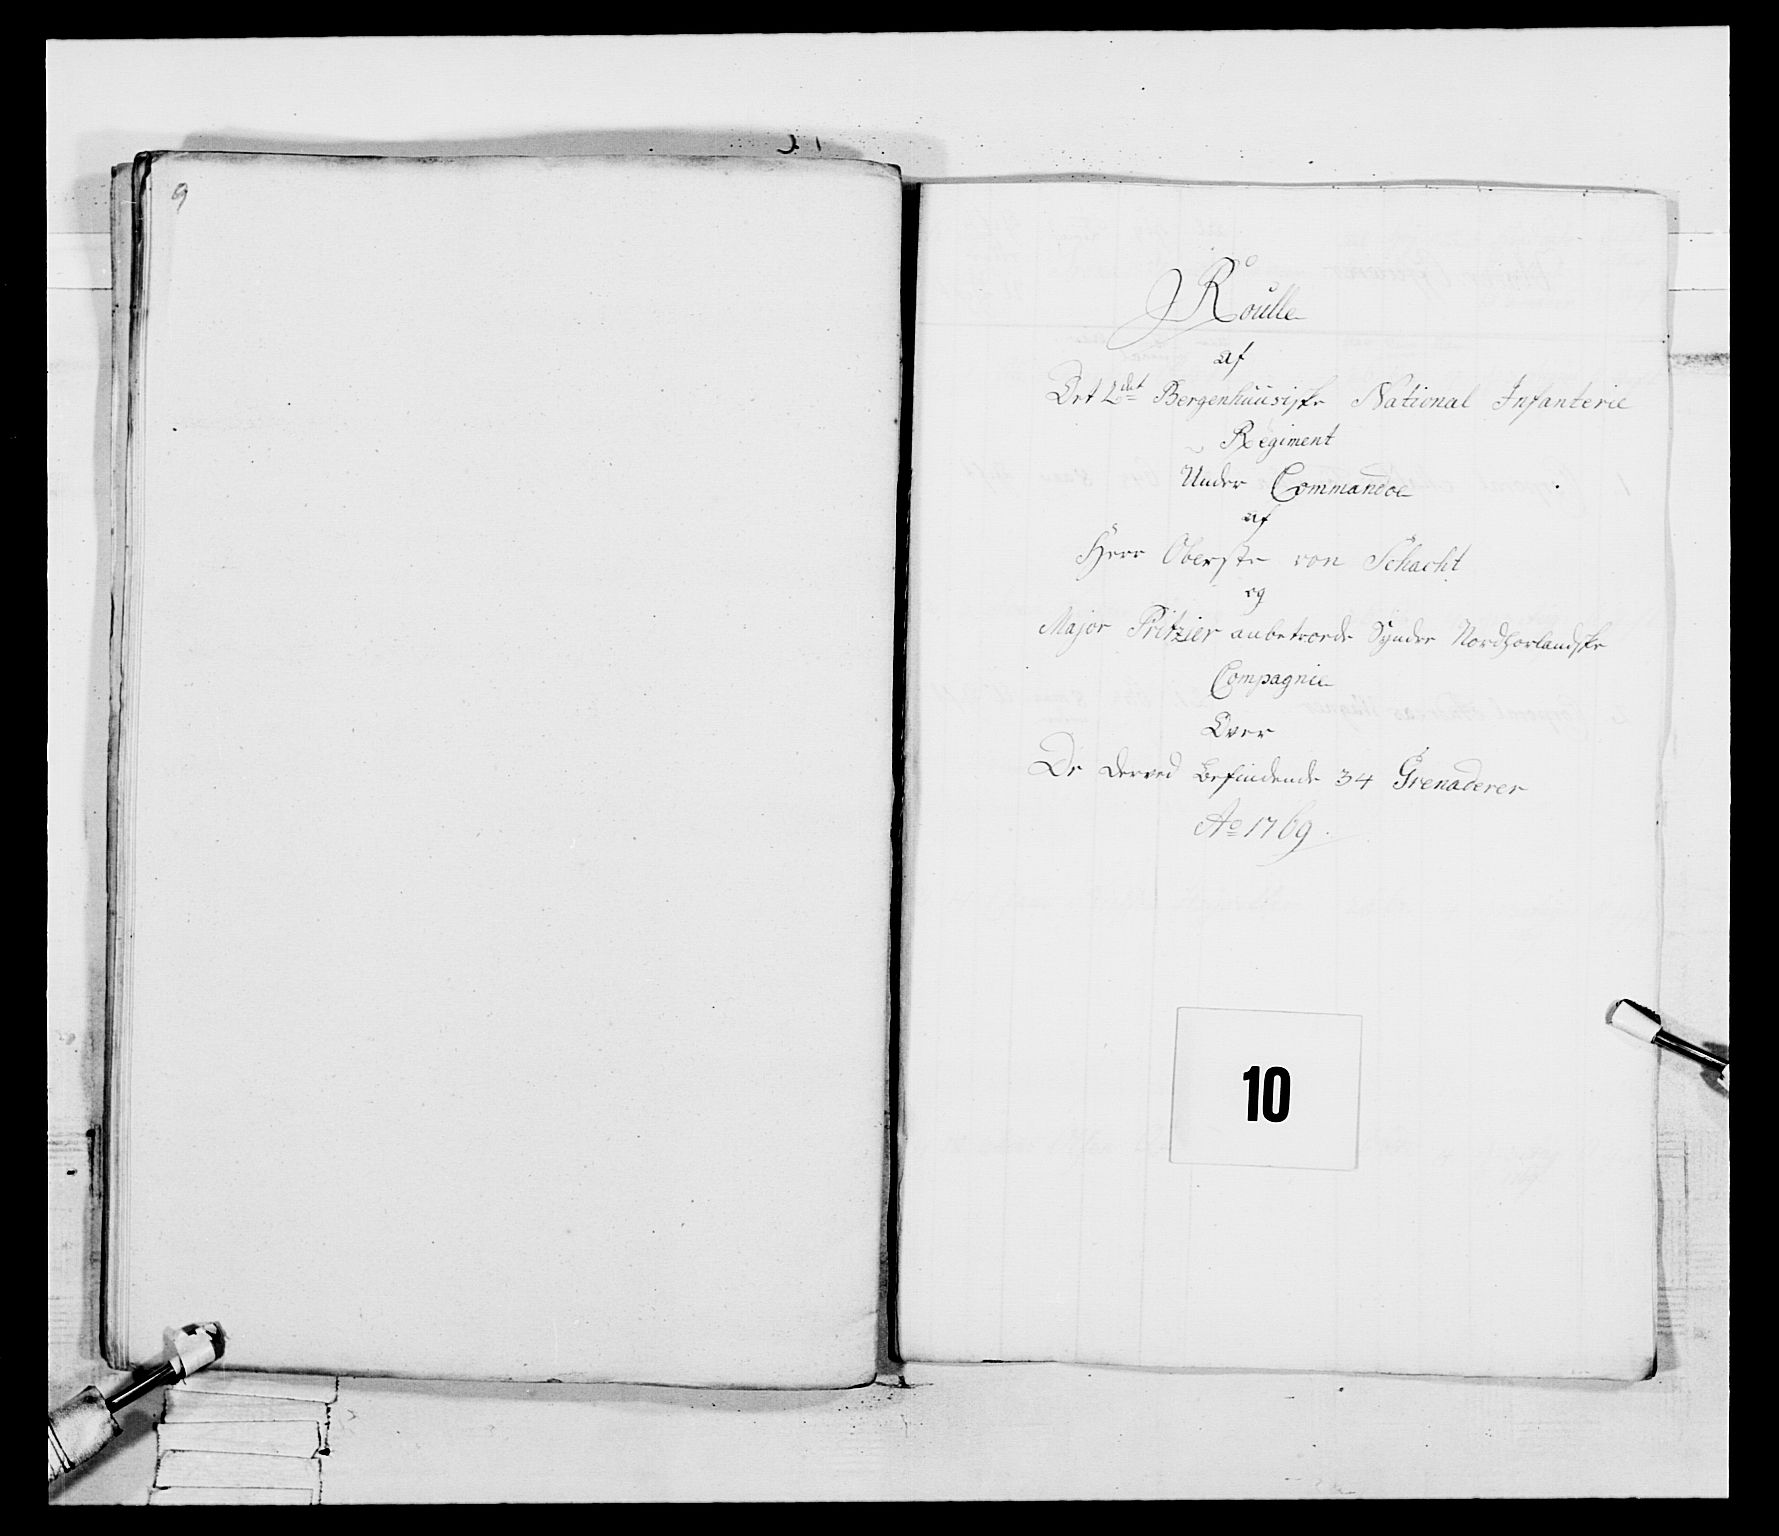 9
Roulle
af
Det 2det Bergenhuusiske National Infanterie
Regiment
Under Commandoe
af
Herr Oberste von Schacht
og
Major Pritzier anbetroede Syndre Nordhorlandske
Compagnie
Over
De derved befindende 34 Grenaderer
Ao 1769.
10